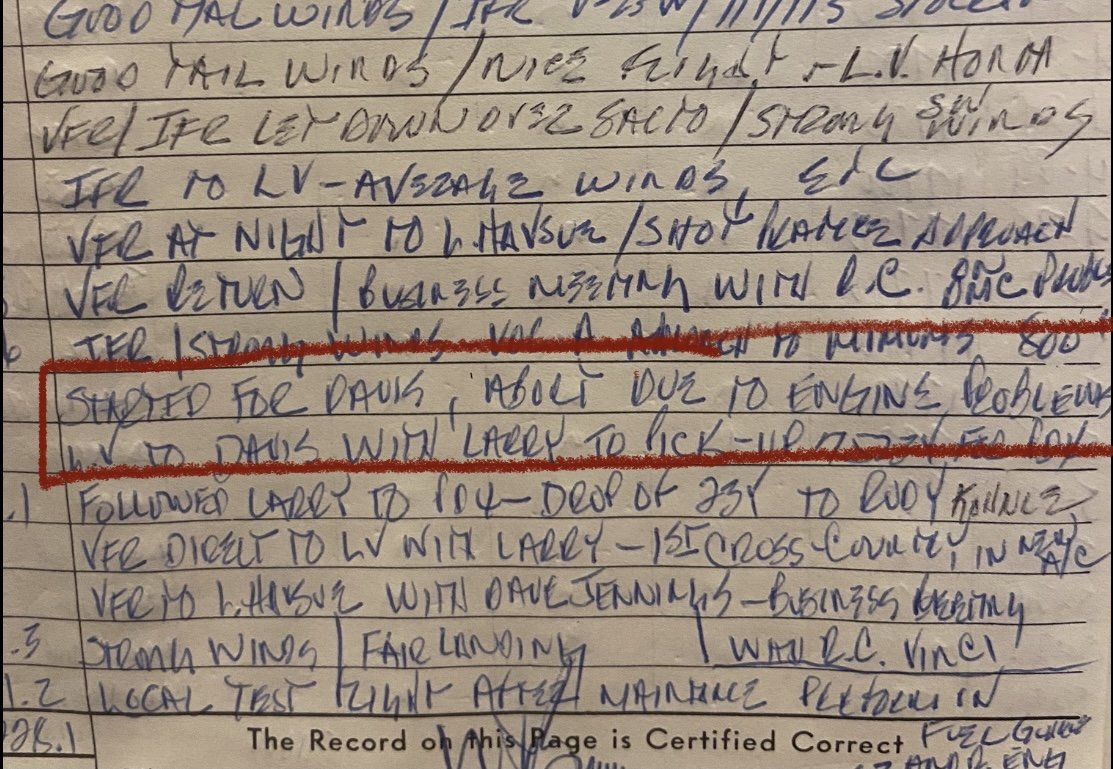 GOOD TAIL WINDS / IFR
GOOD TAIL WINDS / NICE FLIGHT - L.V. HONDA
VFR/IFR LET DOWN OVER SACTO / STRONG SW WINDS
IFR TO LV - AVERAGE WINDS, ETC
VFR AT NIGHT TO L. HAVSUE / SHOT APPROACH
VFR RETURN / BUSINESS MEETING WITH R.C.
IFR / STRONG WINDS VOR A APPROACH TO MINIMUMS 800
STARTED FOR DAVIS, ABORT DUE TO ENGINE PROBLEMS
L.V TO DAVIS WITH LARRY TO PICK-UP FOR PDX
.1 FOLLOWED LARRY TO PDX - DROP OF 23Y TO RUDY
VFR DIRECT TO LV WITH LARRY - 1ST CROSS-COUNTRY, IN NEW A/C
VFR TO L. HAVSUE WITH DAVE JENNINGS - BUSINESS MEETING
.3 STRONG WINDS | FAIR LANDING | WITH R.C. VINCI
1.2 LOCAL TEST FLIGHT AFTER MAINTNCE PERFORM IN
28.1 The Record on this Page is Certified Correct FUEL
AND R. ENG